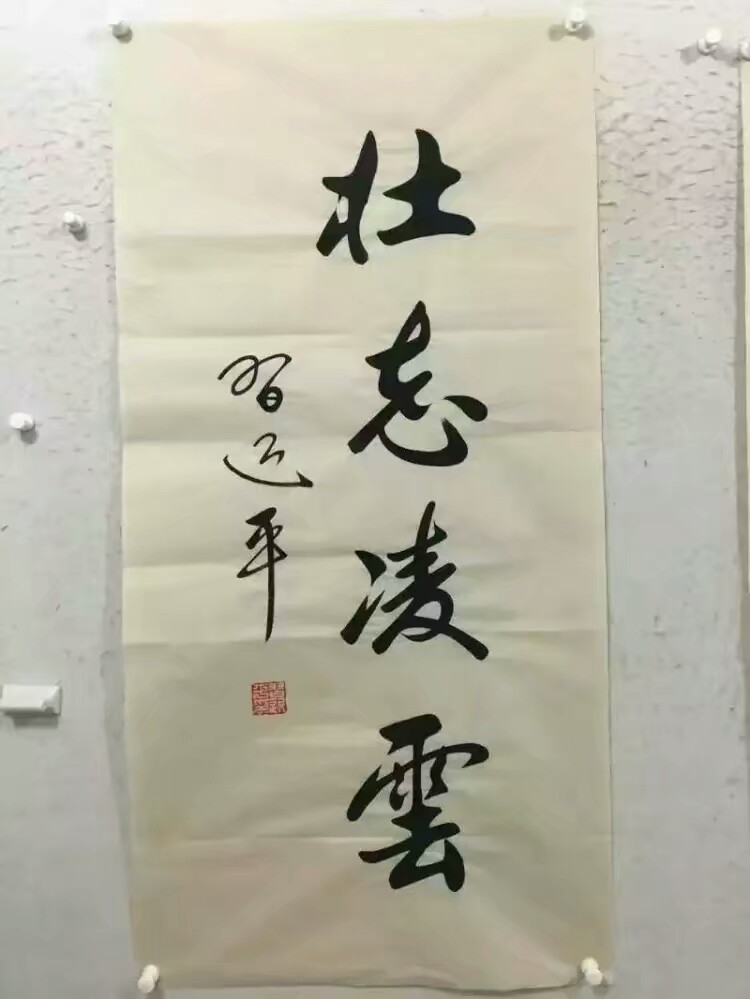 壮志凌雲
习近平